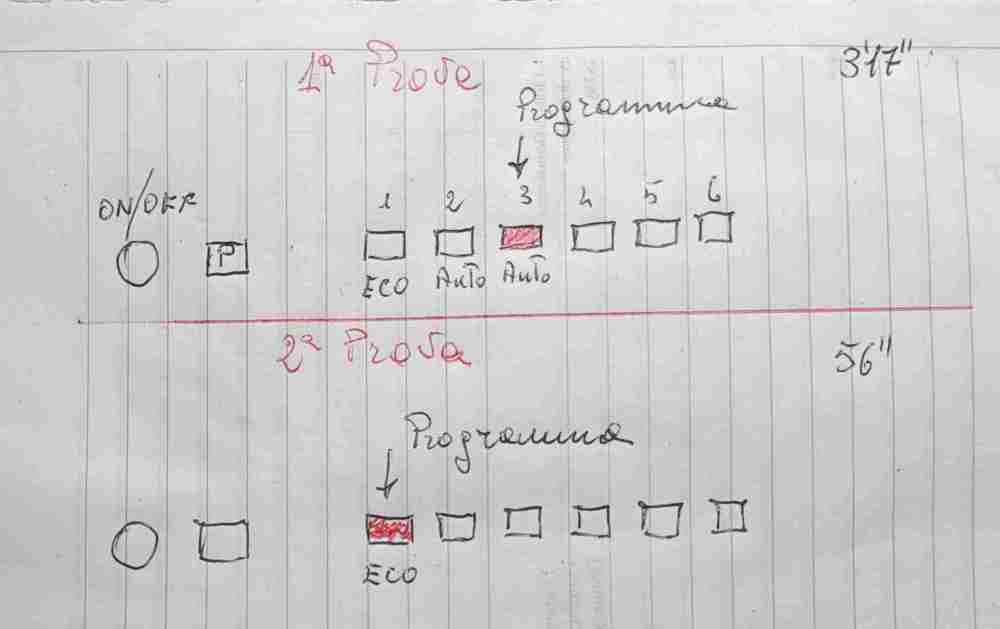 1ª Prova 3'17"
Programma
ON/OFF P 1 2 3 4 5 6
ECO Auto Auto
2ª Prova 56"
Programma
ECO